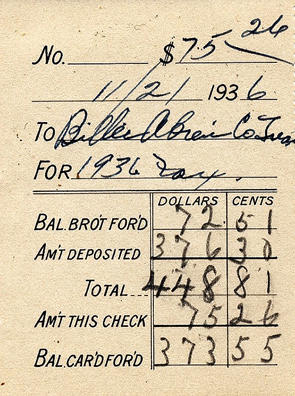 No. $75 26
11/21 1936
To Co Treas
FOR 1936 Tax.
DOLLARS CENTS
BAL. BRO'T FOR'D 72 51
AM'T DEPOSITED 376 30
TOTAL 448 81
AM'T THIS CHECK 75 26
BAL. CAR'D FOR'D 373 55